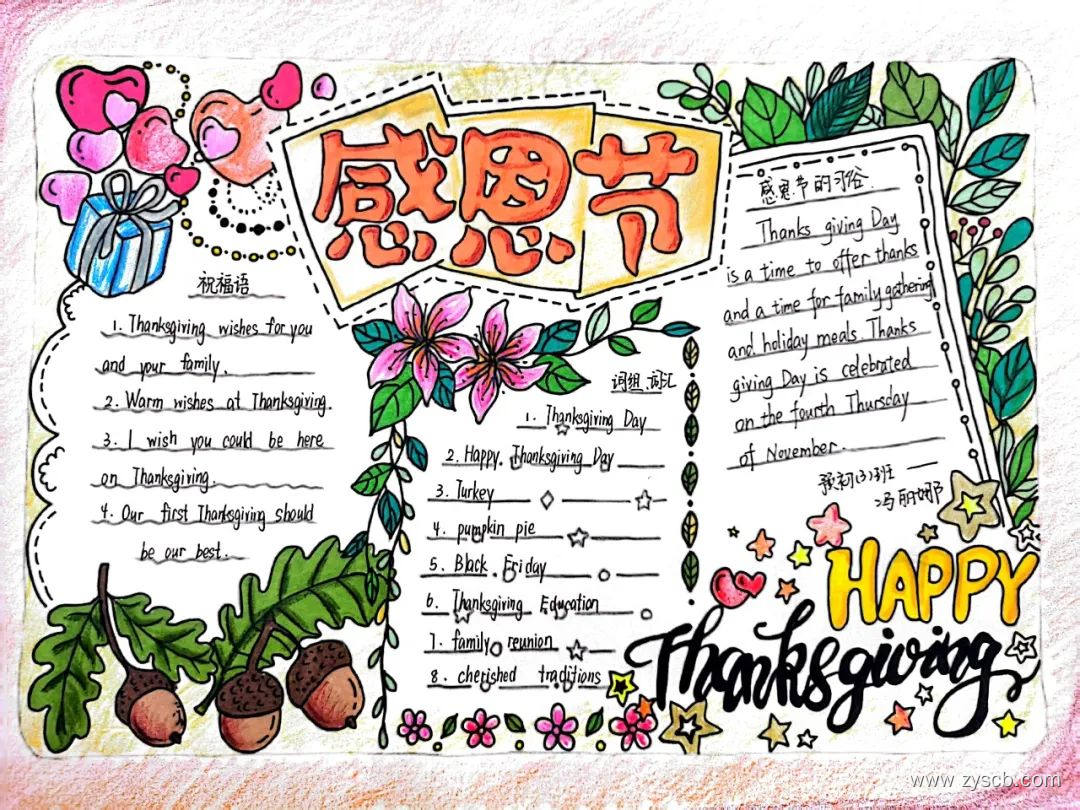 感恩节
祝福语
1. Thanksgiving wishes for you
and your family.
2. Warm wishes at Thanksgiving.
3. I wish you could be here
on Thanksgiving.
4. Our first Thanksgiving should
be our best.
词组 词汇
1. Thanksgiving Day
2. Happy Thanksgiving Day
3. Turkey
4. pumpkin pie
5. Black Friday
6. Thanksgiving Education
7. family reunion
8. cherished traditions
感恩节的习俗
Thanks giving Day
is a time to offer thanks
and a time for family gathering
and holiday meals. Thanks
giving Day is celebrated
on the fourth Thursday
of November.
预初(3)班
冯丽娜
HAPPY
Thanksgiving
www.zyscb.com